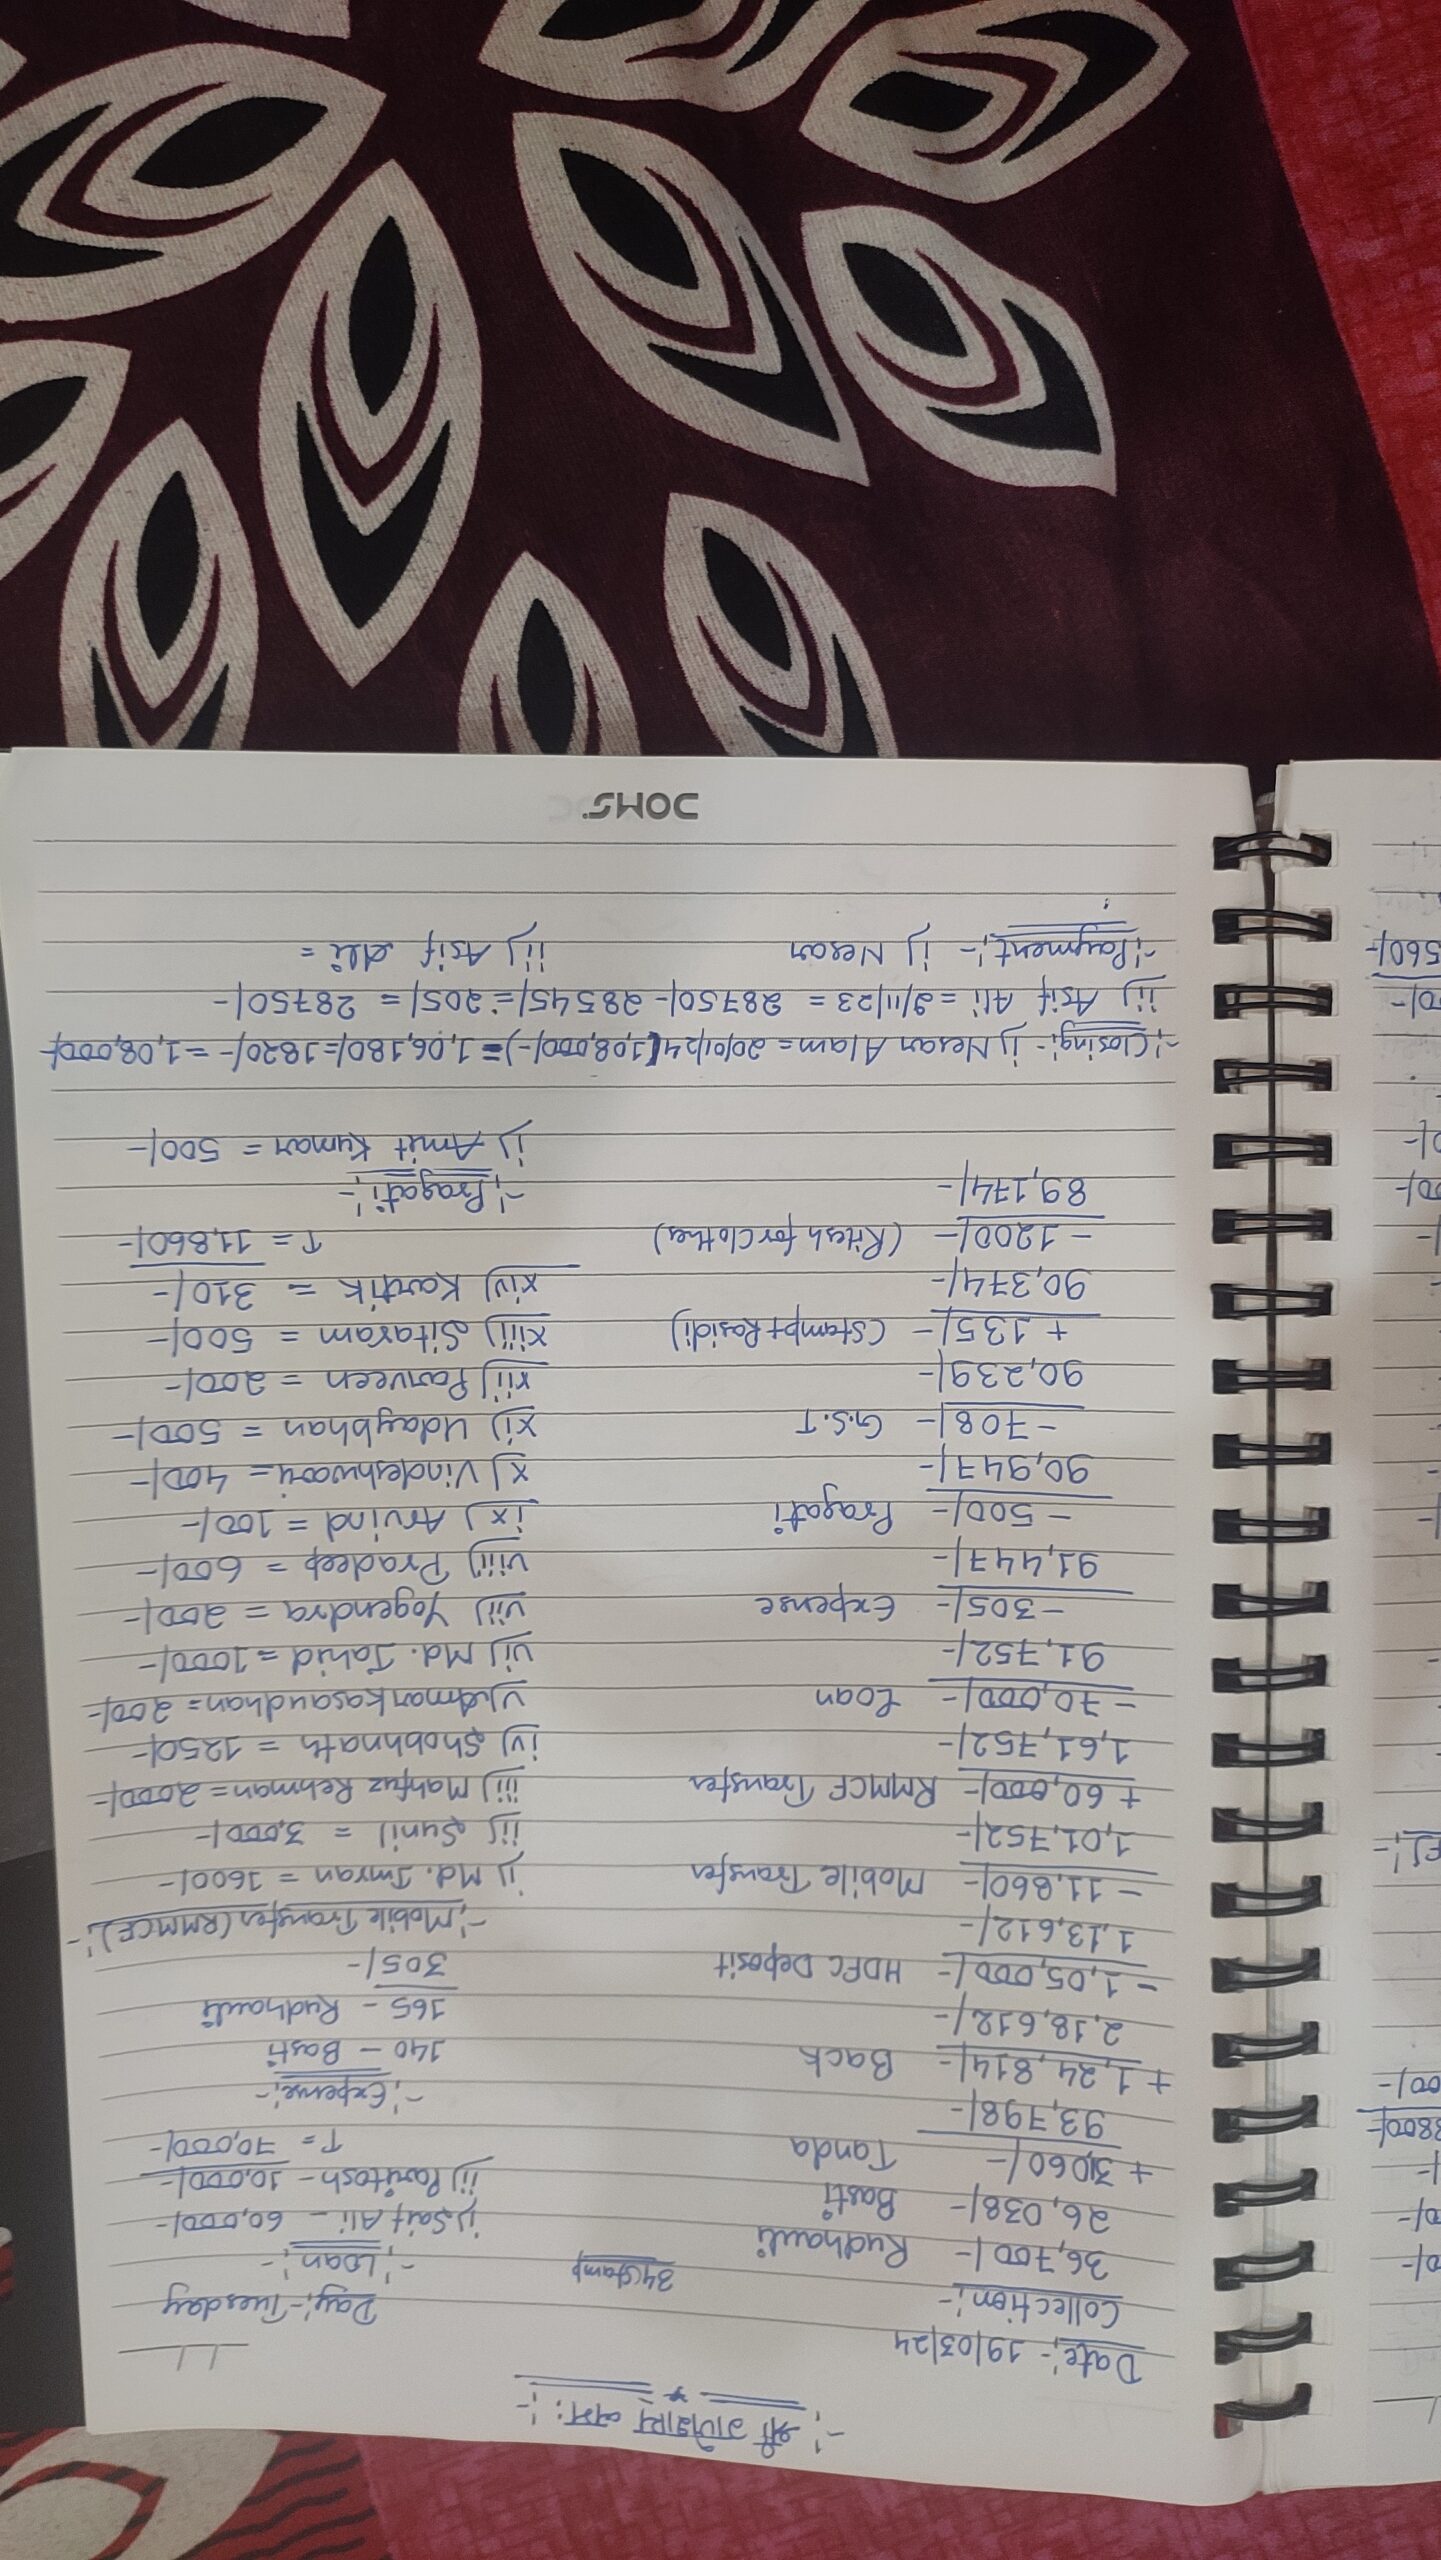 -: श्री गणेशाय नमः :-
Date:- 19/03/24
Day:- Tuesday
Collection:-
34 Stamp
36,700/- Rudhauli
26,038/- Basti
+ 31,060/- Tanda
93,798/-
+ 1,24,814/- Back
2,18,612/-
- 1,05,000/- HDFC Deposit
1,13,612/-
- 11,860/- Mobile Transfer
1,01,752/-
+ 60,000/- RMMCF Transfer
1,61,752/-
- 70,000/- Loan
91,752/-
- 305/- Expense
91,447/-
- 500/- Pragati
90,947/-
- 708/- G.S.T
90,239/-
+ 135/- (Stamp+Rasidi)
90,374/-
- 1200/- (Ritesh for Clothes)
89,174/-
-: Loan:-
i) Saif Ali - 60,000/-
ii) Paritosh - 10,000/-
T = 70,000/-
-: Expense:-
140 - Basti
165 - Rudhauli
305/-
-: Mobile Transfer (RMMCF):-
i) Md. Imran = 1600/-
ii) Sunil = 3,000/-
iii) Mahfuz Rehman = 2,000/-
iv) Shobhnath = 1250/-
vi) Md. Jahid = 1000/-
vii) Yogendra = 200/-
viii) Pradeep = 600/-
ix) Arvind = 100/-
x) Vindeshwari = 400/-
xi) Udaybhan = 500/-
xii) Parveen = 200/-
xiii) Sitaram = 500/-
xiv) Kartik = 310/-
T = 11,860/-
-: Pragati:-
i) Amit Kumar = 500/-
-: Closing:- i) Nesar Alam = 20/01/24 (1,08,000/-) = 1,06,180/- = 1820/- = 1,08,000/-
ii) Asif Ali = 9/11/23 = 28750/- 28545/- = 205/- = 28750/-
-: Payment:- i) Nesar ii) Asif Ali =
DOMS